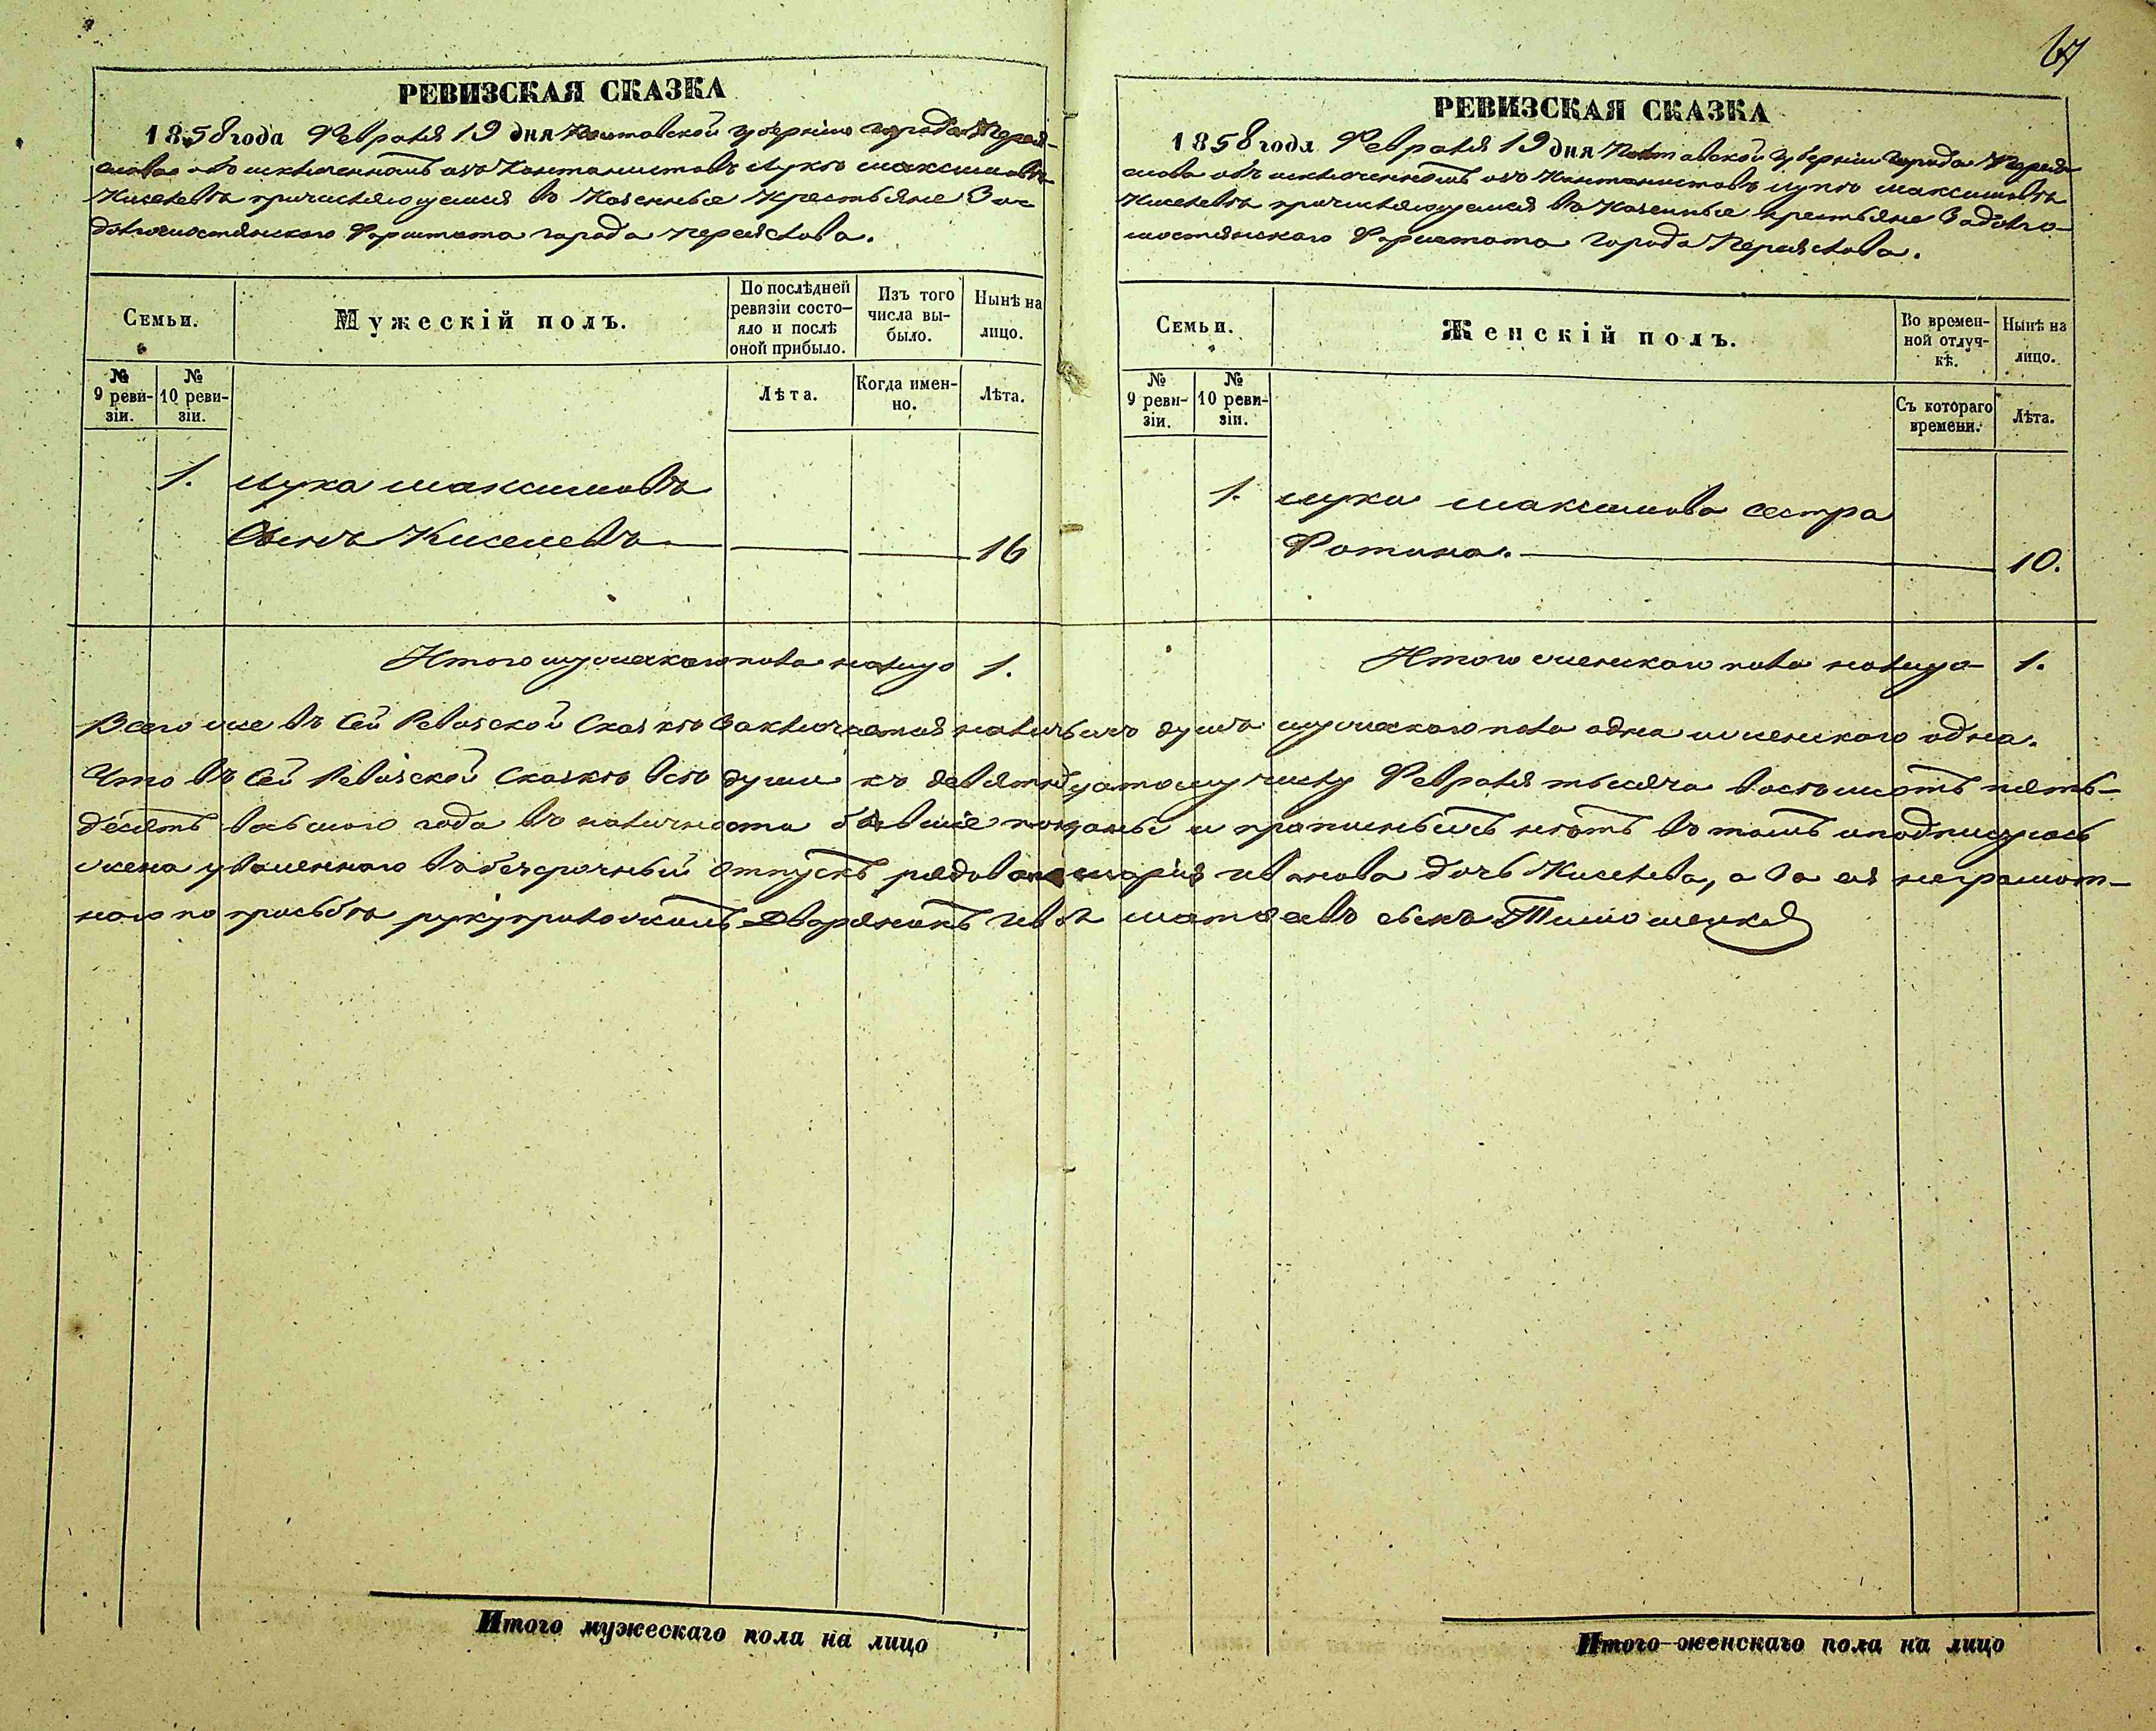 67
РЕВИЗСКАЯ СКАЗКА
1858 года Февраля 19 дня Полтавской губерніи города Перея-
слова объ исключенномъ изъ Кантонистовъ Лукѣ Максимовѣ
Киселевѣ причисляющемся въ Казенные Крестьяне За-
долгомостянского Форштата города Переяслова.
Семьи.
Мужескій полъ.
По послѣдней ревизіи состо-
яло и послѣ оной прибыло.
Изъ того числа вы-
было.
Нынѣ на лицо.
№ 9 реви-
зіи.
№ 10 реви-
зіи.
Лѣта.
Когда имен-
но.
Лѣта.
1. Лука Максимовъ
Сынъ Киселевъ 16
Итого мужескаго пола налицо 1.
РЕВИЗСКАЯ СКАЗКА
1858 года Февраля 19 дня Полтавской губерніи города Перея-
слова объ исключенномъ изъ Кантонистовъ Лукѣ Максимовѣ
Киселевѣ причисляющемся въ Казенные крестьяне Задолго-
мостянского Форштата города Переяслова.
Семьи.
Женскій полъ.
Во времен-
ной отлуч-
кѣ.
Нынѣ на лицо.
№ 9 реви-
зіи.
№ 10 реви-
зіи.
Съ котораго времени.
Лѣта.
1. Луки Максимова сестра
Фотина. 10.
Итого женскаго пола налицо 1.
Всего же въ сей Ревизской Сказкѣ Заключается наличныхъ душъ мужескаго пола одна и женскаго одна.
Что въ сей Ревизской Сказкѣ всѣ души къ девятнадцатому числу Февраля тысяча восемьсотъ пять-
десятъ восьмого года въ наличности бывшіе показаны и прописныхъ нѣтъ въ томъ и подписуюсь
жена уволенного въ безсрочный отпускъ рядового Марія Иванова дочь Киселева, а За ея неграмот-
ною по просьбѣ руку приложилъ Дворянинъ Матвеевъ сынъ Тимошенко
Итого мужескаго пола на лицо
Итого женскаго пола на лицо